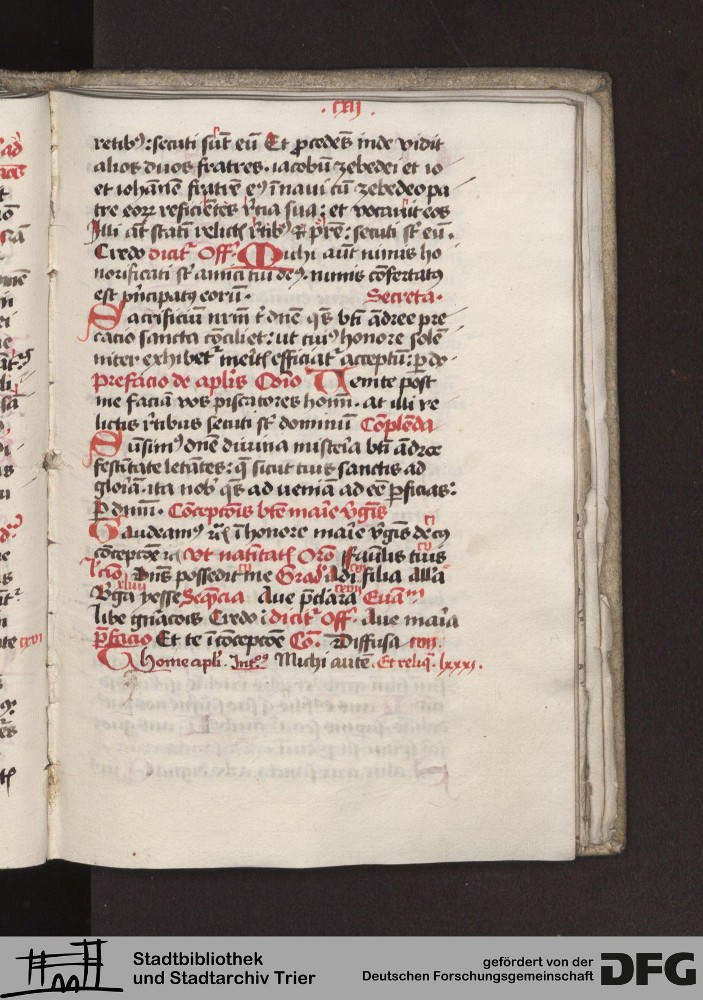 . cxij .
retib9: secuti sūt eū Et p̄cedēs inde vidit
alios duos fratres . iacobū zebedei et io
et iohānē fratrē e9 ī naui cū zebedeo pa
tre eoꝝ reficiētes r̄tia sua: et vocauit eos
Illi āt statī relictꝭ r̄tib9 ⁊ p̄re: secuti sť eū .
Credo dicitr Off. Michi aūt nimis ho
norificati sť amici tui de9 . nimis cōfortat9
est p̄ncipat9 eorū . Secreta .
Sacrificiū nrm̄ t̄ dnē qs bti ādree pre
catio sancta cōciliet: ut cui9 honore solē
niter exhibetr meītꝭ efficiatr acceptū: p do
Prefacio de aplis Cōio Venite post
me faciā vos piscatores homī . at illi re
lictis r̄tibus secuti sť dominū Cōplēda
Sūsim9 dnē diuina misteria bti ādree
festiītate letātes: q̄ sicut tuis sanctis ad
gloriā . ita nob qs ad ueniā ad eē ꝓficias:
P dnm . Cōcepcōis bte maīe v̄gīs
Gaudeam9 ī honore maīe v̄gīs de cī9
cōcepcōe Vt natītatꝭ Orō Fauīlis tuis
Lcīo Dn̄s possedit me Grad Adi filia Allā
xliiij Vga yesse Seq̄cia Aue p̄clara Euā
Libe gn̄acōis Credo dicitr Off. Aue maīa
P̄facio Et te ī cōcepcōe Cō. Diffusa
Thome apli . Int. Michi autē . Et reliq . lxxxj .
Stadtbibliothek
und Stadtarchiv Trier
gefördert von der
Deutschen Forschungsgemeinschaft
DFG